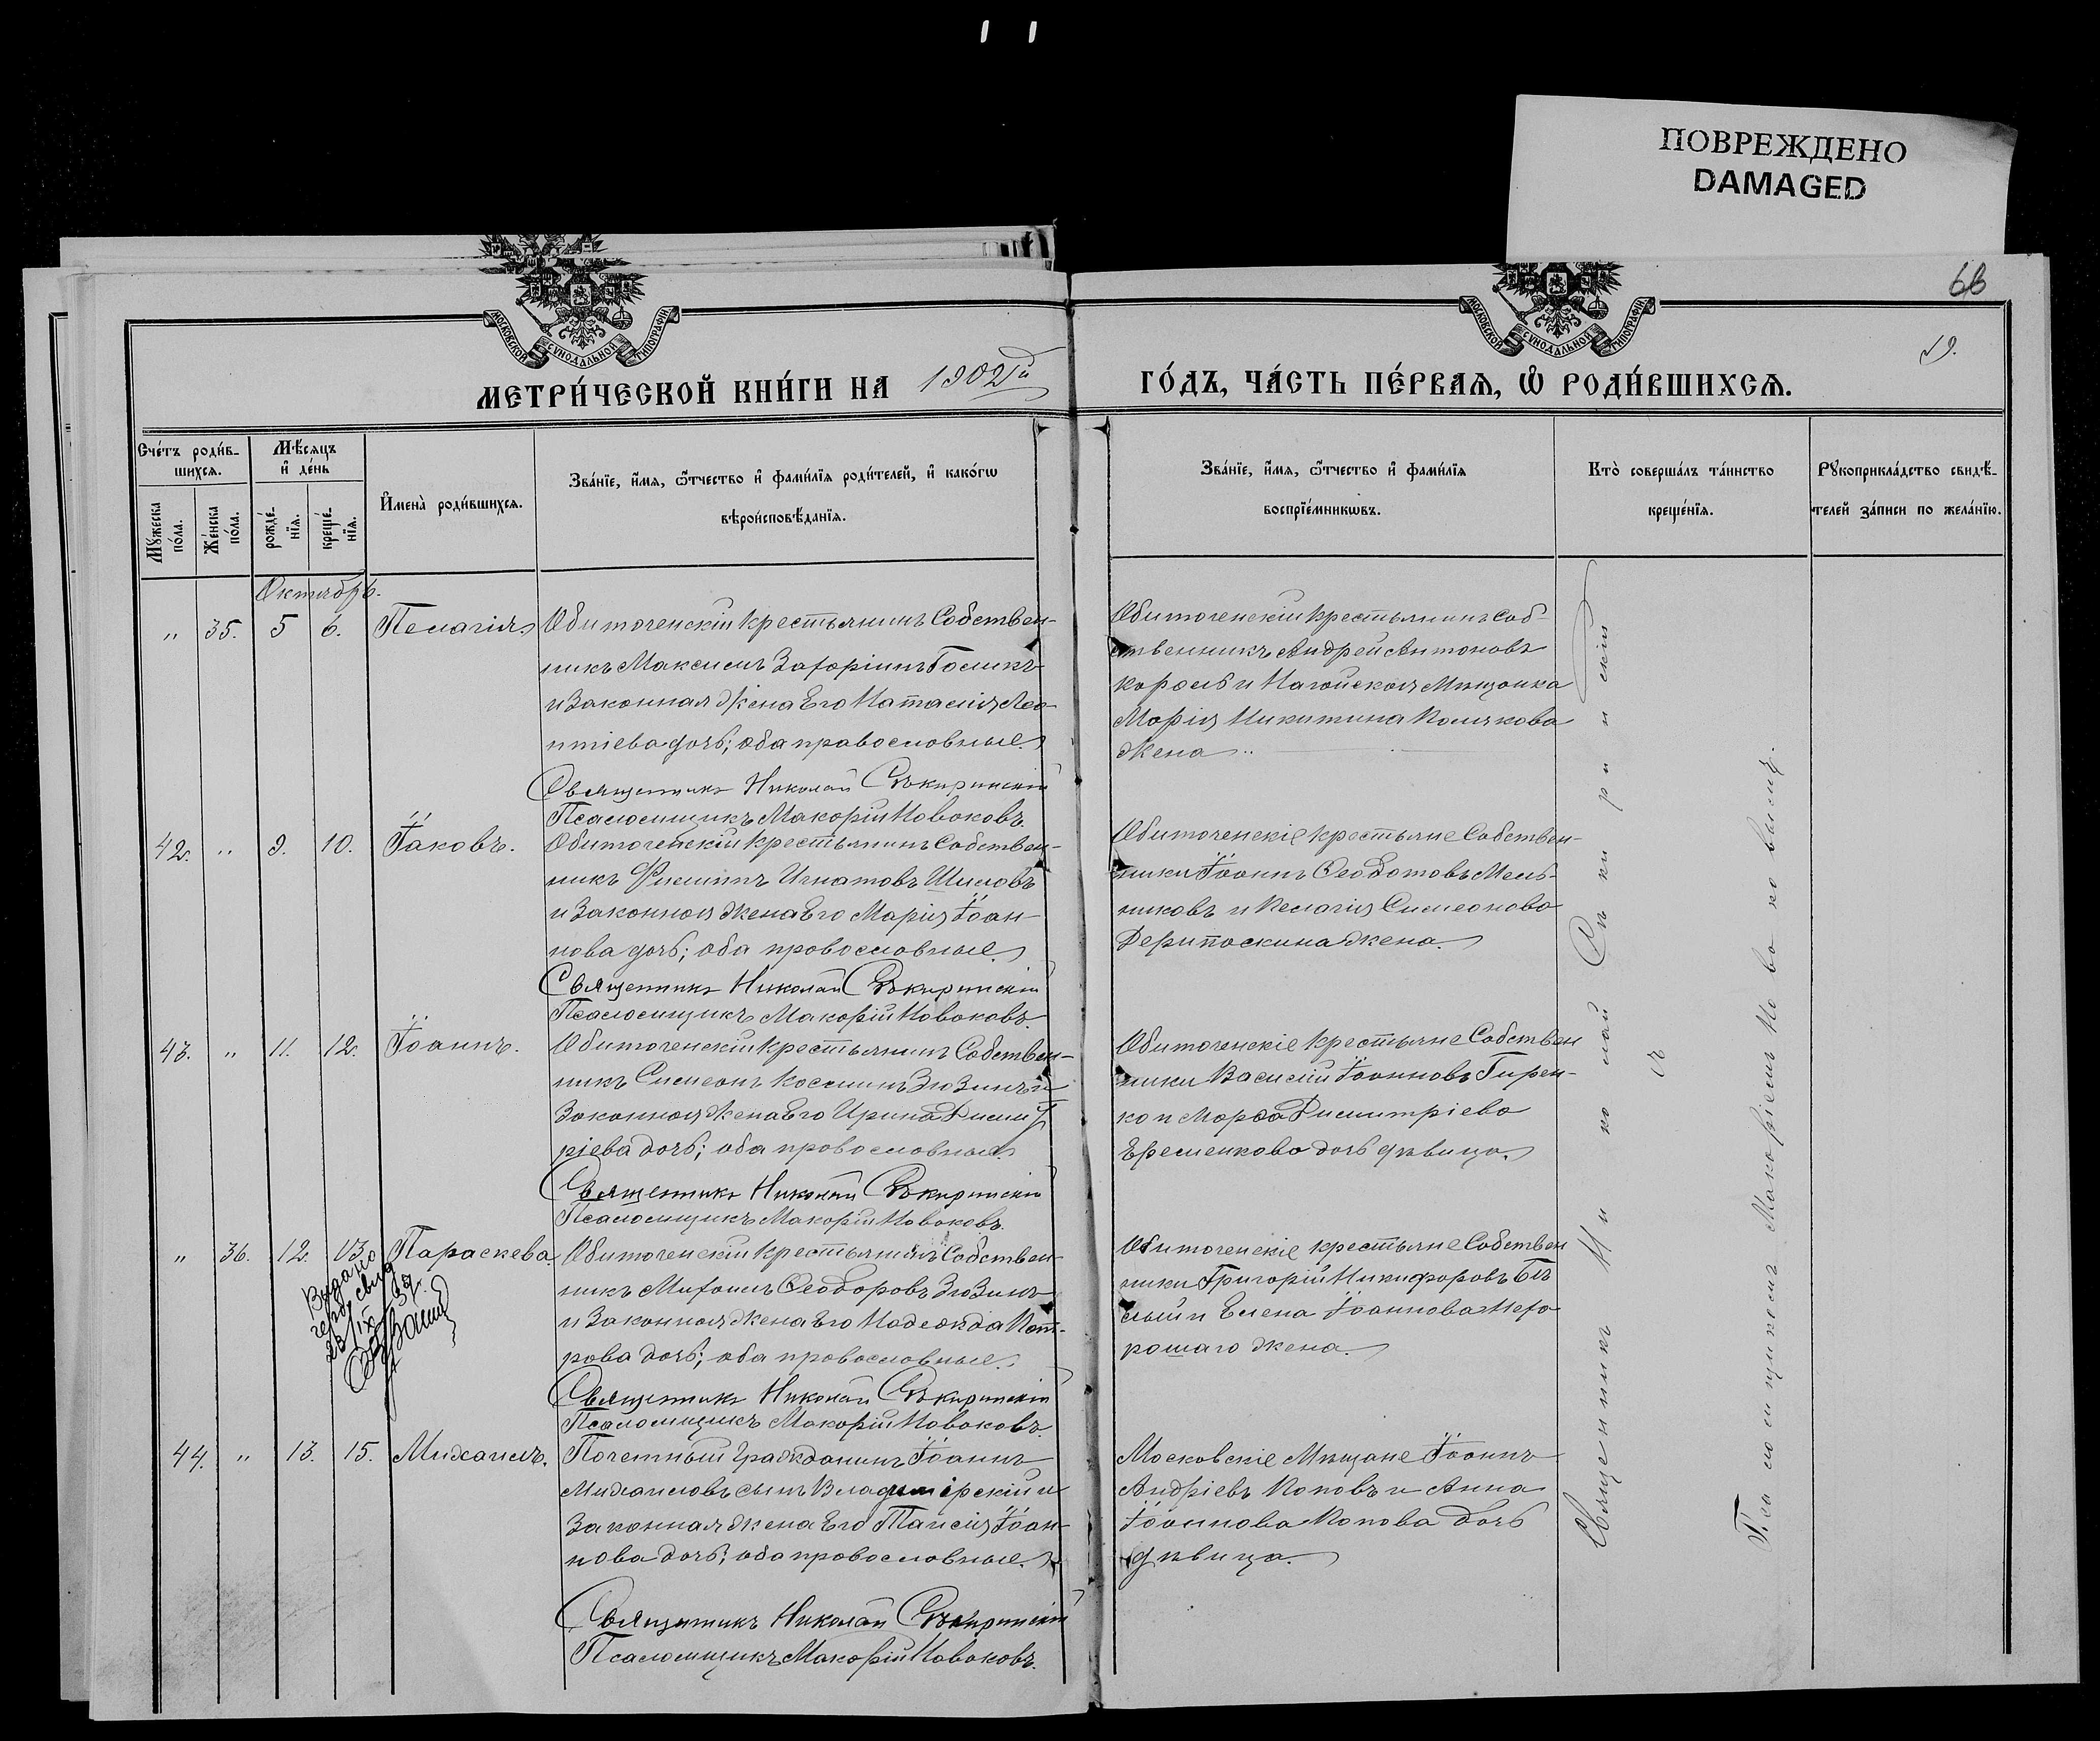 ПОВРЕЖДЕНО
DAMAGED
66
19.
МОСКОВСКОЙ СѴНОДАЛЬНОЙ ТИПОГРАФІИ
МОСКОВСКОЙ СѴНОДАЛЬНОЙ ТИПОГРАФІИ
МЕТРИ́ЧЕСКОЙ КНИ́ГИ НА 1902й
ГО́ДЪ, ЧА́СТЬ ПЕ́РВАѦ, Ѡ҆ РОДИ́ВШИХСѦ.
Сче́тъ роди́в-
шихсѧ.
Мѣ́сѧцъ
и҆ де́нь
Мꙋ́жеска
по́ла.
Же́нска
по́ла.
рожде́-
нїѧ.
креще́-
нїѧ.
И҆мена̀ роди́вшихсѧ.
Зва́нїе, и҆́мѧ, ѿ́чество и҆ фами́лїѧ роди́телей, и҆ како́гѡ
вѣроисповѣ́данїѧ.
Зва́нїе, и҆́мѧ, ѿ́чество и҆ фами́лїѧ
воспрїе́мникѡвъ.
Кто̀ соверша́лъ та́инство
креще́нїѧ.
Рꙋкоприкла́дство свидѣ́-
телей за́писи по жела́нїю.
Октябрь.
" 35. 5 6. Пелагія
Обиточенскій крестьянинъ Собствен-
никъ Максимъ Захарiинъ Голикъ
и Законная Жена Его Наталія Лео-
нтіева дочь; оба православные.
Священникъ Николай Сѣкиринскій
Псаломщикъ Макарій Новаковъ.
Обиточенскій крестьянинъ Соб-
ственникъ Андрей Антоновъ
Король и Ногайская Мѣщанка
Марія Никитина Полякова
Жена
42. " 9. 10. Іаковъ.
Обиточенскій крестьянинъ Собствен-
никъ Филиппъ Игнатовъ Шиловъ
и Законная Жена Его Марія Іоан-
нова дочь; оба православные.
Священникъ Николай Сѣкиринскій
Псаломщикъ Макарій Новаковъ.
Обиточенскіе крестьяне Собствен-
ники Іоаннъ Ѳеодотовъ Мель-
никовъ и Пелагія Симеонова
Дерипаскина жена.
43. " 11. 12. Іоаннъ.
Обиточенскій крестьянинъ Собствен-
никъ Симеонъ Косминъ Зюзинъ и
Законная Жена Его Ирина Димит
ріева дочь; оба православные.
Священникъ Николай Сѣкиринскій
Псаломщикъ Макарій Новаковъ.
Обиточенскіе крестьяне Собствен
ники Василій Іоанновъ Гирен-
ко и Марѳа Димитріева
Еременкова дочь дѣвица.
" 36. 12. 13. Параскева.
Обиточенскій крестьянинъ Собствен-
никъ Миѳаилъ Ѳеодоровъ Зюзинъ
и Законная Жена Его Надежда Пет-
рова дочь; оба православные.
Священникъ Николай Сѣкиринскій
Псаломщикъ Макарій Новаковъ.
Выдано
Обиточенскіе крестьяне Собствен
ники Григорій Никифоровъ Бѣ
лый и Елена Іоаннова Нехо
рошаго жена.
44. " 13. 15. Михаилъ.
Почетный Гражданинъ Іоаннъ
Михаиловъ сынъ Владимірскій и
Законная Жена Его Таисія Іоан-
нова дочь; оба православные.
Священникъ Николай Сѣкиринскій
Псаломщикъ Макарій Новаковъ.
Московскіе Мѣщане Іоаннъ
Андріевъ Поповъ и Анна
Іоаннова Попова дочь
дѣвица.
Священникъ Николай Сѣкиринскій
съ
Псаломщикомъ Макаріемъ Новаковымъ.